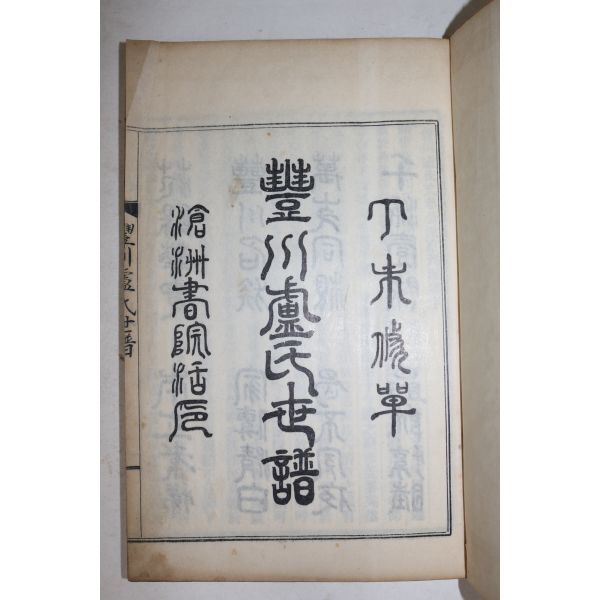 丁未修單
豐川盧氏世譜
滄洲書院活印
豐川盧氏世譜